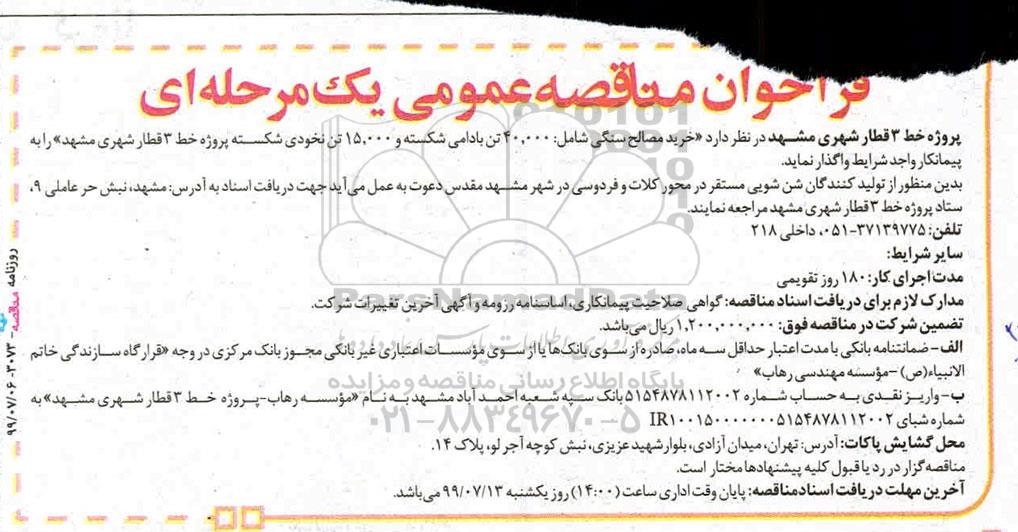 فراخوان مناقصه عمومی یک مرحله‌ای
پروژه خط ۳ قطار شهری مشـهد در نظر دارد «خرید مصالح سنگی شامل: ۴۰,۰۰۰ تن بادامی شکسته و ۱۵,۰۰۰ تن نخودی شکسـته پروژه خط ۳ قطار شهری مشهد» را به
پیمانکار واجد شرایط واگذار نماید.
بدین منظور از تولید کنندگان شن شویی مستقر در محور کلات و فردوسی در شهر مشـهد مقدس دعوت به عمل می‌آید جهت دریافت اسناد به آدرس: مشهد، نبش حر عاملی ۹،
ستاد پروژه خط ۳ قطار شهری مشهد مراجعه نمایند.
تلفن: ۳۷۱۳۹۷۷۵-۰۵۱، داخلی ۲۱۸
سایر شرایط:
مدت اجرای کار: ۱۸۰ روز تقویمی
مدارک لازم برای دریافت اسناد مناقصه: گواهی صلاحیت پیمانکاری، اساسنامه رزومه و آگهی آخرین تغییرات شرکت.
تضمین شرکت در مناقصه فوق: ۱,۲۰۰,۰۰۰,۰۰۰ ریال می‌باشد.
الف- ضمانتنامه بانکی با مدت اعتبار حداقل سـه ماه، صادره از سـوی بانک‌ها یا از سوی مؤسسـات اعتباری غیر بانکی مجـوز بانک مرکزی در وجه «قرارگاه سازندگی خاتم
الانبیاء(ص) -مؤسسه مهندسی رهاب»
ب- واریـز نقـدی به حسـاب شـماره ۵۱۵۴۸۷۸۱۱۲۰۰۲ بانک سـپه شـعبه احمـد آباد مشـهد بـه نـام «مؤسسـه رهاب-پـروژه خـط ۳ قطـار شـهری مشـهد» به
شماره شبای IR۱۰۰۱۵۰۰۰۰۰۰۰۵۱۵۴۸۷۸۱۱۲۰۰۲
محل گشایش پاکات: آدرس: تهران، میدان آزادی، بلوار شهید عزیزی، نبش کوچه آجرلو، پلاک ۱۴.
مناقصه‌گزار در رد یا قبول کلیه پیشنهادها مختار است.
آخرین مهلت دریافت اسناد مناقصه: پایان وقت اداری ساعت (۱۴:۰۰) روز یکشنبه ۹۹/۰۷/۱۳ می‌باشد.
روزنامه مناقصه - ۳۰۷۳ - ۹۹/۰۷/۰۶
ParsNamadData
پایگاه اطلاع رسانی مناقصه و مزایده
۰۲۱-۸۸۳۴۹۶۷۰-۵